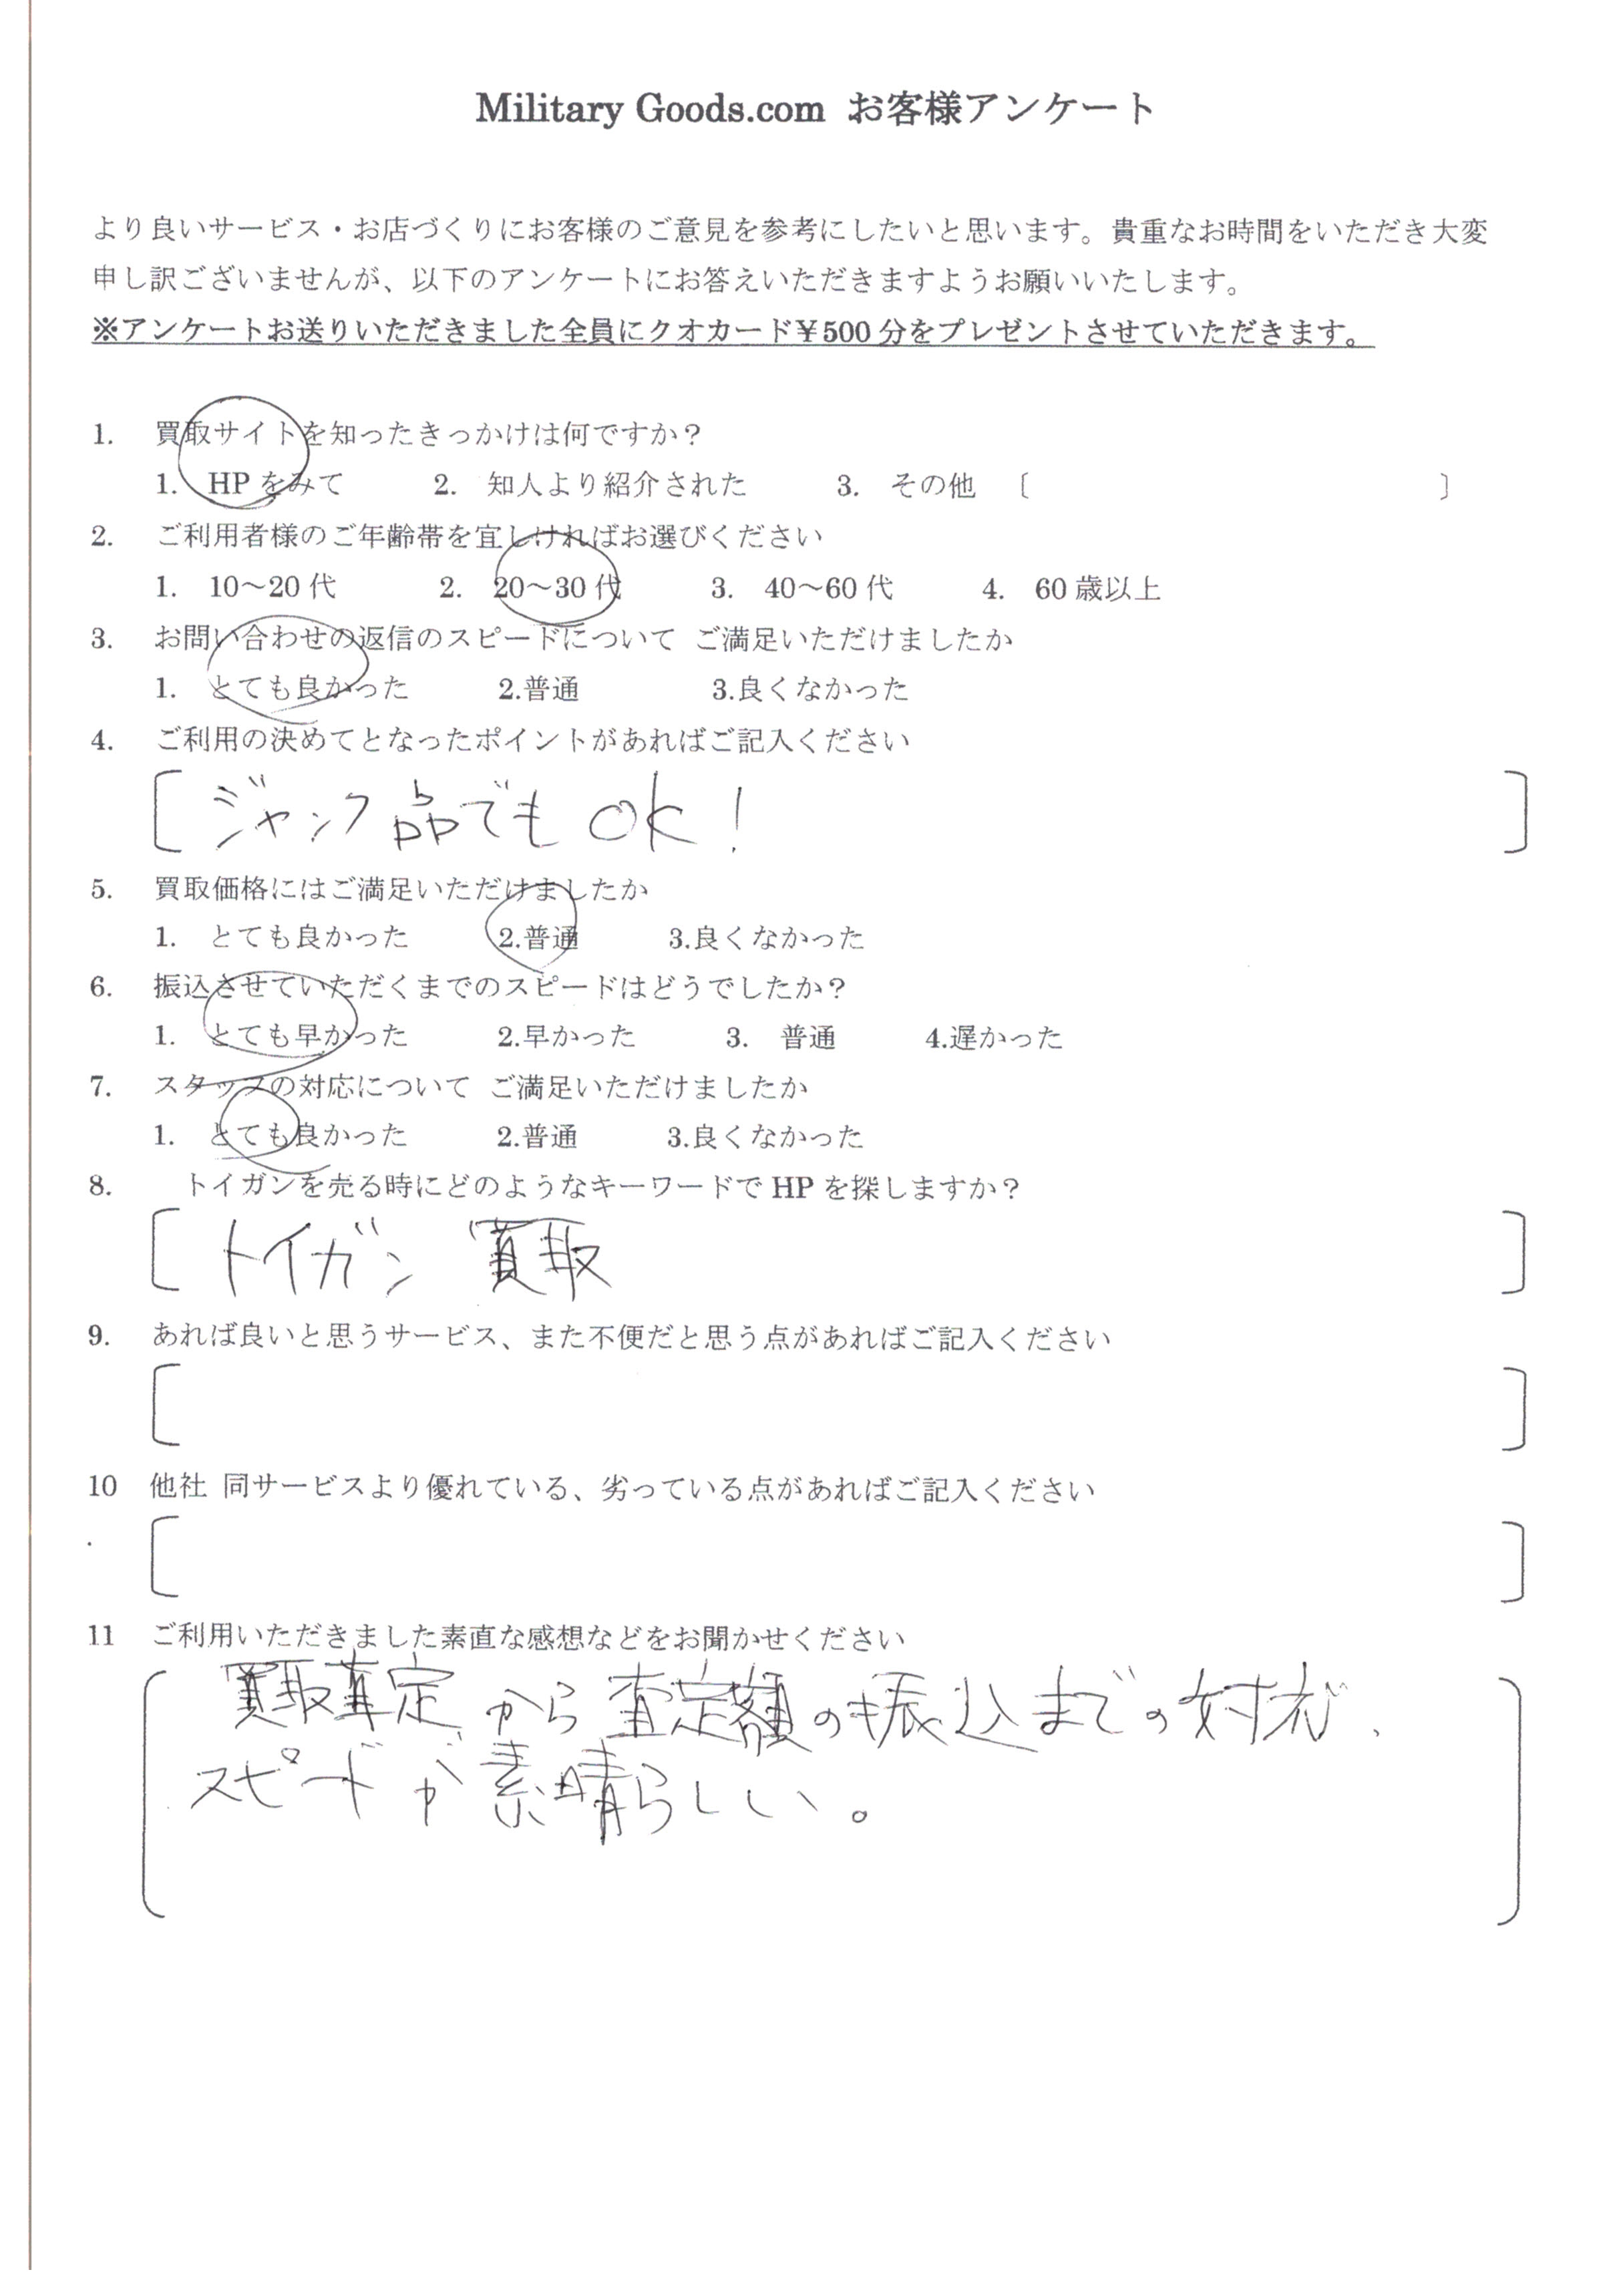 Military Goods.com お客様アンケート
より良いサービス・お店づくりにお客様のご意見を参考にしたいと思います。貴重なお時間をいただき大変
申し訳ございませんが、以下のアンケートにお答えいただきますようお願いいたします。
※アンケートお送りいただきました全員にクオカード￥500 分をプレゼントさせていただきます。
1. 買取サイトを知ったきっかけは何ですか？
1. HP をみて 2. 知人より紹介された 3. その他 〔 〕
2. ご利用者様のご年齢帯を宜しければお選びください
1. 10～20 代 2. 20～30 代 3. 40～60 代 4. 60 歳以上
3. お問い合わせの返信のスピードについて ご満足いただけましたか
1. とても良かった 2.普通 3.良くなかった
4. ご利用の決めてとなったポイントがあればご記入ください
ジャンク品でも OK！
5. 買取価格にはご満足いただけましたか
1. とても良かった 2.普通 3.良くなかった
6. 振込させていただくまでのスピードはどうでしたか？
1. とても早かった 2.早かった 3. 普通 4.遅かった
7. スタッフの対応について ご満足いただけましたか
1. とても良かった 2.普通 3.良くなかった
8. トイガンを売る時にどのようなキーワードで HP を探しますか？
トイガン 買取
9. あれば良いと思うサービス、また不便だと思う点があればご記入ください
10. 他社 同サービスより優れている、劣っている点があればご記入ください
11 ご利用いただきました素直な感想などをお聞かせください
買取査定から査定額の振込までの対応、
スピードが素晴らしい。